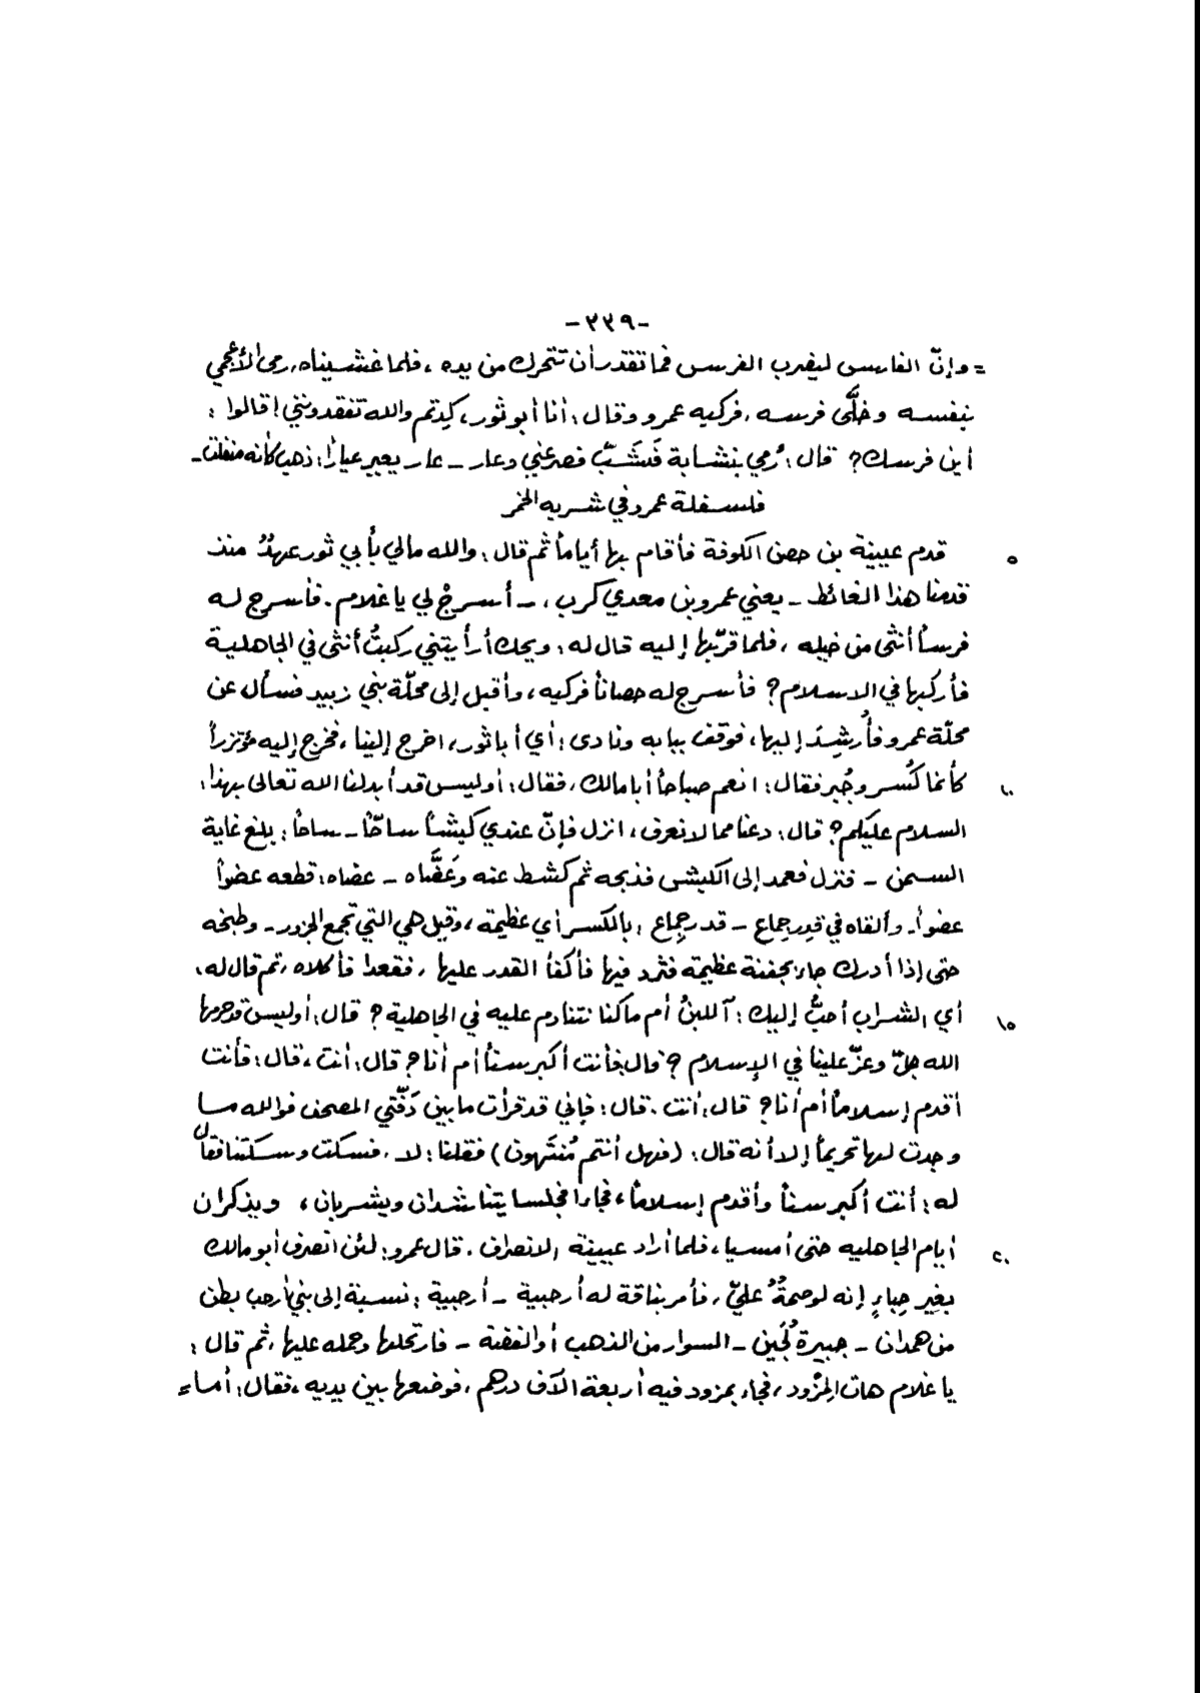 -٣٣٩-
= وإنّ الفارس ليضرب الفرس فما تقدر أن تتحرك من يده ، فلما غشيناه، رمى الأعجمي
بنفسه وخلَّى فرسه ، فركبه عمرو وقال : أنا أبو ثور، كِدتم والله تفقدونني! قالوا :
أين فرسك؟ قال : رُمي بنشابة فَشَبَّ فصرعني وعار ـ عار يعير عياراً : ذهب كأنه منفلت ـ
فلسفلة عمرو في شربه الخمر
٥ قدم عيينة بن حصن الكوفة فأقام بها أياماً ثم قال : والله مالي بأبي ثور عهدٌ منذ
قدمنا هذا الغائط ـ يعني عمرو بن معدي كرب ، ـ أسرجْ لي يا غلام . فأسرج له
فرساً أنثى من خيله ، فلما قرّبها إليه قال له : ويحك أرأيتني ركبتُ أنثى في الجاهلية
فأركبها في الاسلام؟ فأسرج له حصاناً فركبه ، وأقبل إلى محلّة بني زبيد فسأل عن
محلّة عمرو فأُرشِدَ إليها، فوقف ببابه ونادى : أي أبا ثور، اخرج إلينا ، فخرج إليه مؤتزراً
١٠ كأنما كُسر وجُبر فقال : انعم صباحاً أبا مالك ، فقال : أوليس قد أبدلنا الله تعالى بهذا :
السلام عليكم؟ قال : دعنا مما لا نعرف ، انزل فإنّ عندي كبشاً ساحّاً ـ ساحاً : بلغ غاية
السمن ـ فنزل فعمد إلى الكبش فذبحه ثم كشط عنه وعَضَّاه ـ عضاه : قطعه عضواً
عضواً ـ وألقاه في قدِر جِماع ـ قدر جِماع ، بالكسر أي عظيمة ، وقيل هي التي تجمع الجزور ـ وطبخه
حتى إذا أدرك جاء بجفنة عظيمة فثرد فيها فأكفأ القدر عليها ، فقعدا فأكلاه ، ثم قال له ،
١٥ أي الشراب أحبُّ إليك : آللبنُ أم ما كنا نتنادم عليه في الجاهلية ؟ قال : أوليس قد حرمها
الله جلّ وعزّ علينا في الإسلام ؟ قال فأنت أكبر سناً أم أنا؟ قال : أنت ، قال : فأنت
أقدم إسلاماً أم أنا؟ قال : أنت . قال : فإني قد قرأت ما بين دَفّتي المصحف فوالله ما
وجدت لها تحريماً إلا أنه قال : (فهل أنتم مُنتَهون) فقلنا : لا . فسكت وسكتنا فقال
له : أنت أكبر سناً وأقدم إسلاماً ، فجاءا فجلسا يتناشدان ويشربان ، ويذكران
٢٠ أيام الجاهليه حتى أمسيا ، فلما أراد عيينة الانصراف . قال عمرو : لئن انصرف أبو مالك
بغير حِباءٍ إنه لوصمةٌ عليّ ، فأمر بناقة له أرحبية ـ أرحبية : نسبة إلى بني أرحب بطن
من همدان ـ جبيرة لُجَين ـ السوار من الذهب أو الفضة ـ فارتحلها وحمله عليها ، ثم قال :
يا غلام هات المِزْود ، فجاء بمزود فيه أربعة آلاف درهم ، فوضعها بين يديه ، فقال : أما =